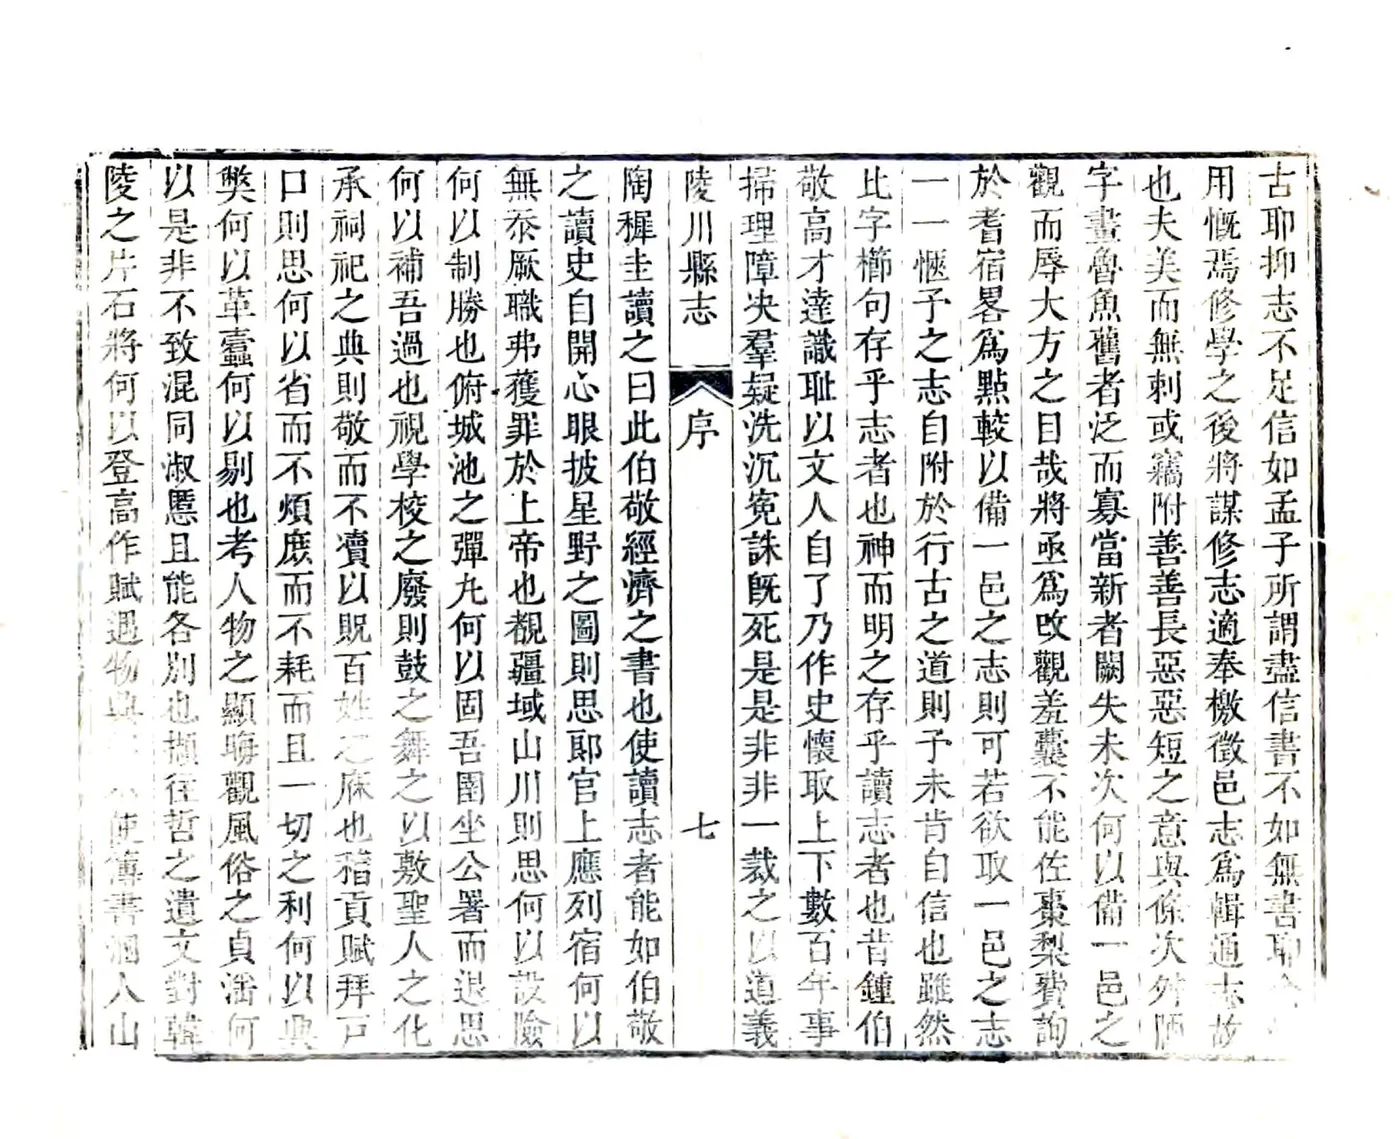 古耶抑志不足信如孟子所謂盡信書不如無書耶
用慨焉修學之後將謀修志適奉檄徵邑志爲輯通志故
也夫美而無刺或竊附善善長惡惡短之意與條次舛陋
字畫魯魚舊者泛而寡當新者闕失未次何以備一邑之
觀而辱大方之目哉將亟爲改觀羞囊不能佐棗梨費詢
於耆宿畧爲點較以備一邑之志則可若欲取一邑之志
一一愜予之志自附於行古之道則予未肯自信也雖然
比字櫛句存乎志者也神而明之存乎讀志者也昔鍾伯
敬高才達識耻以文人自了乃作史懷取上下數百年事
掃理障决羣疑洗沉冤誅既死是是非非一裁之以道義
陵川縣志
序
七
陶穉圭讀之曰此伯敬經濟之書也使讀志者能如伯敬
之讀史自開心眼披星野之圖則思郎官上應列宿何以
無忝厥職弗獲罪於上帝也覩疆域山川則思何以設險
何以制勝也俯城池之彈丸何以固吾圉坐公署而退思
何以補吾過也視學校之廢則鼓之舞之以敷聖人之化
承祠祀之典則敬而不瀆以貺百姓之庥也稽貢賦拜戸
口則思何以省而不煩庶而不耗而且一切之利何以興
獘何以革蠹何以剔也考人物之顯晦觀風俗之貞滛何
以是非不致混同淑慝且能各別也擷往哲之遺文對韓
陵之片石將何以登高作賦遇物興 使簿書洞入山